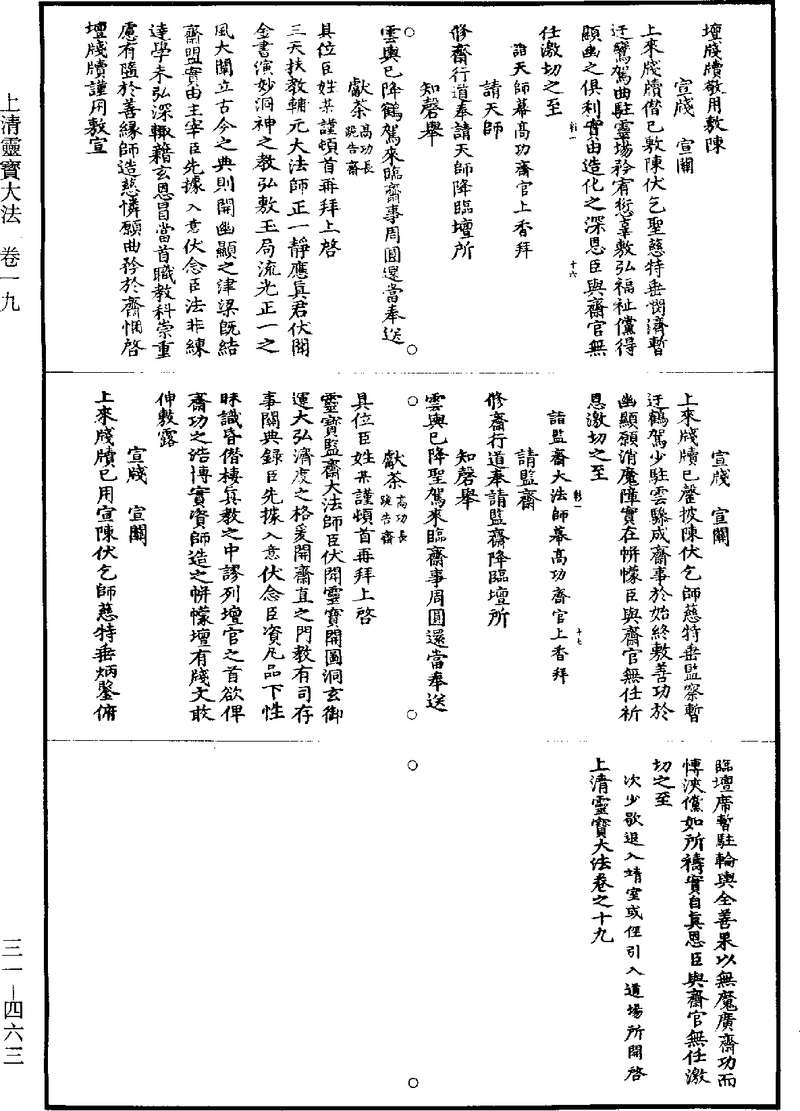 上清靈寶大法 卷一九
三一－四六三
壇牋牘敬用敷陳
宣牋 宣關
上來牋牘僭已敷陳伏乞聖慈特垂閔濟暫
迂鸞駕曲駐靈場矜宥愆辜敷弘福祉儻得
顯幽之俱利實由造化之深恩臣與齋官無
任激切之至
詣天師幕高功齋官上香拜
請天師
修齋行道奉請天師降臨壇所
知磬舉
雲輿已降鶴駕來臨齋事周圓還當奉送
獻茶高功長跪告齋
具位臣姓某謹頓首再拜上啓
三天扶教輔元大法師正一靜應真君伏聞
金書演妙洞神之教弘敷玉局流光正一之
風大闡立古今之典則開幽顯之津梁既結
齋盟實由主宰臣先據入意伏念臣法非練
達學未弘深輒藉玄恩冒當首職教科崇重
慮有隳於善緣師造慈憐願曲矜於齋悃啓
壇牋牘謹用敷宣
宣牋 宣關
上來牋牘已罄披陳伏乞師慈特垂監察暫
迂鶴駕少駐雲驂成齋事於始終敷善功於
幽顯願消魔障實在帡幪臣與齋官無任祈
恩激切之至
詣監齋大法師幕高功齋官上香拜
請監齋
修齋行道奉請監齋降臨壇所
知磬舉
雲輿已降聖駕來臨齋事周圓還當奉送
獻茶高功長跪告齋
具位臣姓某謹頓首再拜上啓
靈寶監齋大法師臣伏聞靈寶開圖洞玄御
運大弘濟度之格爰開齋直之門教有司存
事關典錄臣先據入意伏念臣資凡品下性
昧識昏僭棲真教之中謬列壇官之首欲俾
齋功之浩博實資師造之帡幪壇有牋文敢
伸敷露
宣牋 宣關
上來牋牘已用宣陳伏乞師慈特垂炳鑒俯
臨壇席暫駐輪輿全善果以無魔廣齋功而
慱浹儻如所禱實自真恩臣與齋官無任激
切之至
次少歇退入靖室或徑引入道場所開啓
上清靈寶大法卷之十九